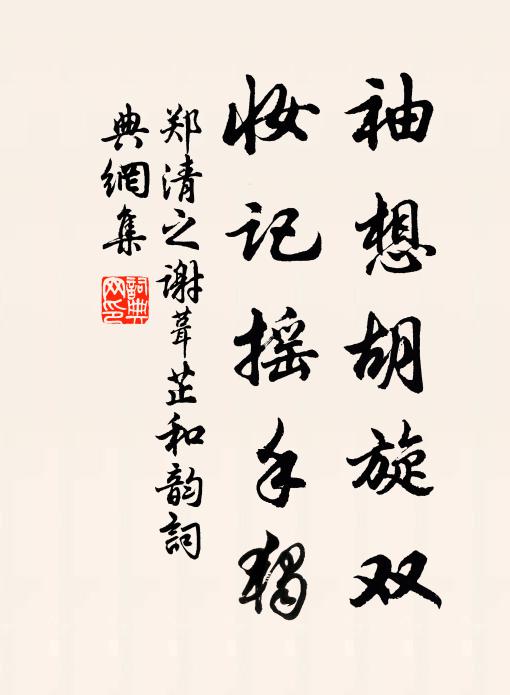 袖想胡旋双
妆记摇手独
郑清之谢葺芷和韵詞
典網集
詞典网印